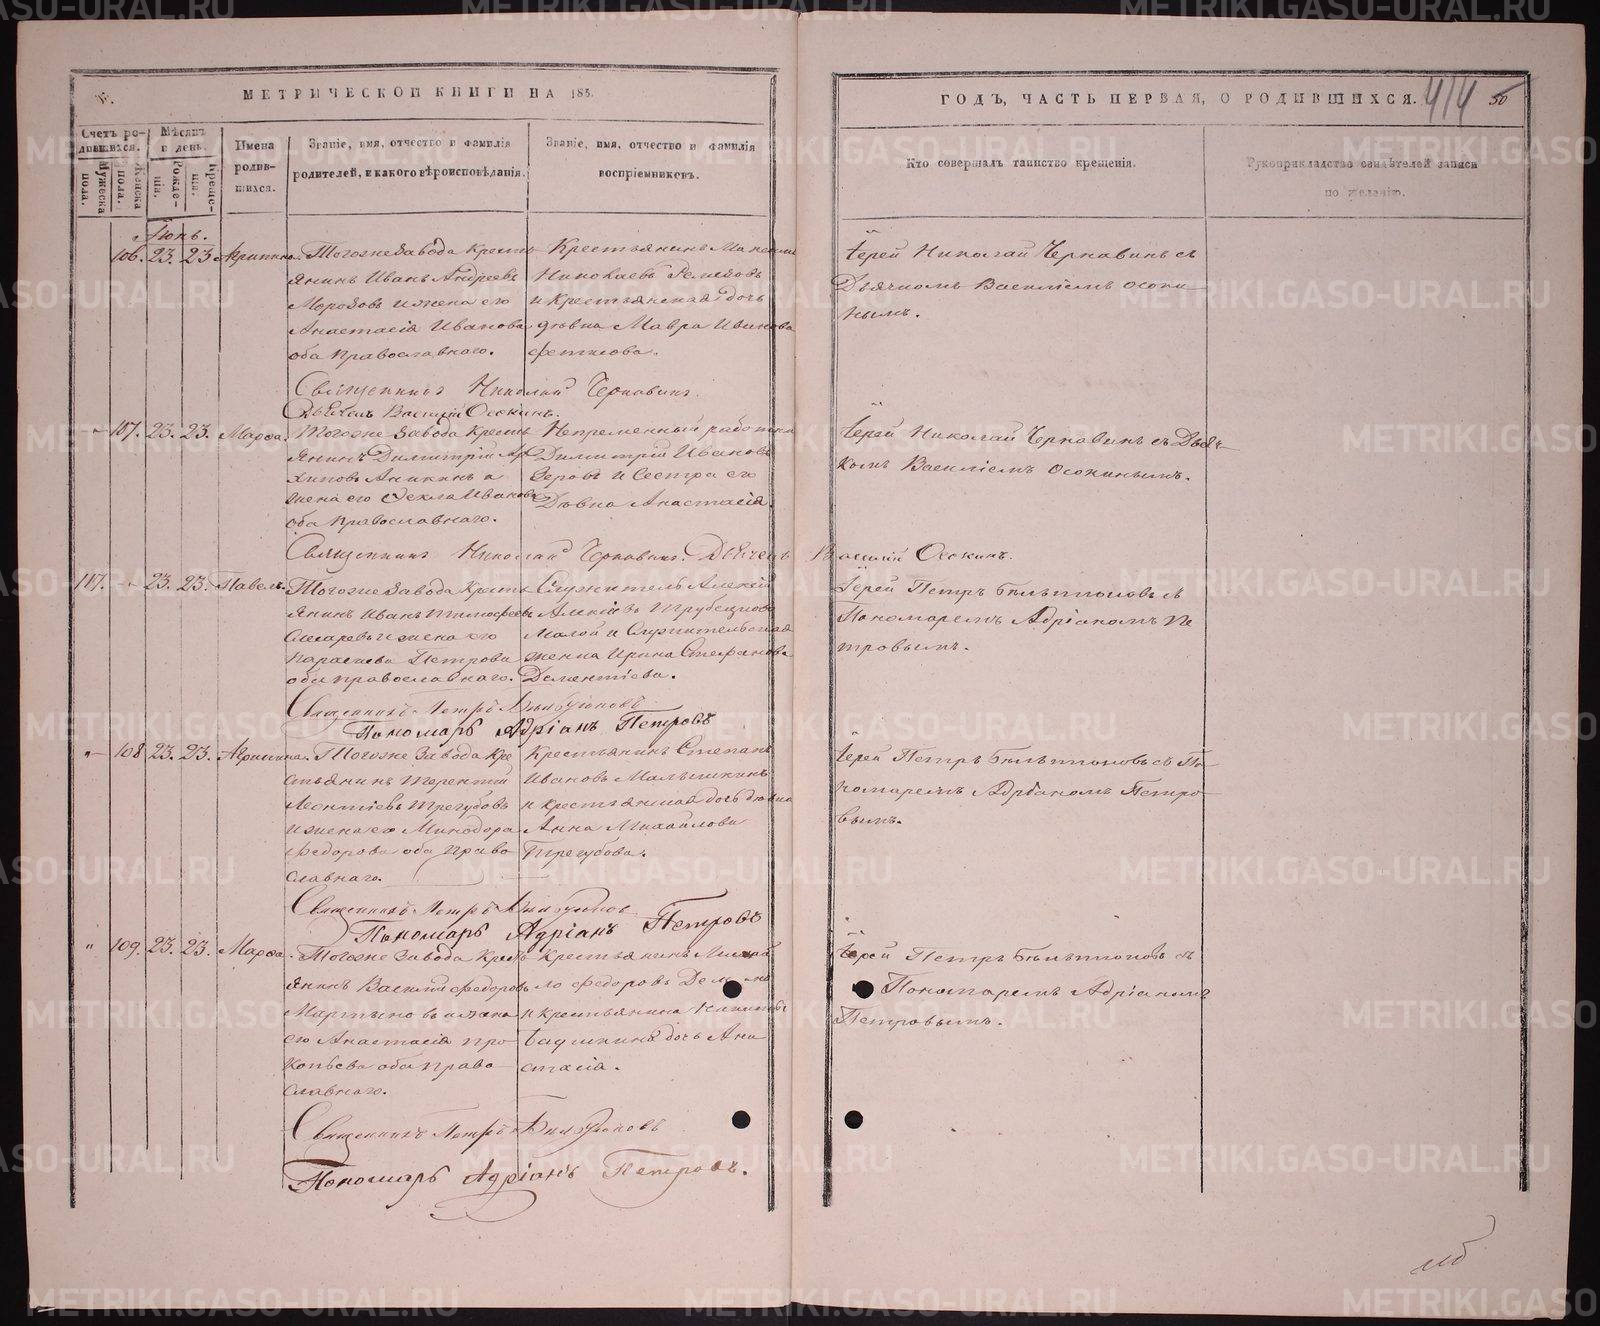 МЕТРИЧЕСКОЙ КНИГИ НА 185
Счетъ родившихся.
Мужеска пола.
Женска пола.
Мѣсяцъ и день.
Рожденія.
Крещенія.
Имена родившихся.
Званіе, имя, отчество и фамилія родителей, и какого вѣроисповѣданія.
Званіе, имя, отчество и фамилія воспріемниковъ.
Іюнь.
106. 23. 23
Тогоже Завода Крестьянинъ Иванъ Андреевъ
Морозовъ и жена его
Анастасія Иванова
оба Православнаго.
Крестьянинъ
Николаевъ
и Крестьянская дочь
дѣвка Мавра Иванова
Священникъ Николай Чернавинъ.
Дьячекъ Василій Осокинъ.
107. 23. 23. Марѳа.
Тогоже Завода Крестьянинъ Димитрій Архиповъ Аникинъ и
жена его Ѳекла Иванова
оба Православнаго.
Непременный работникъ
Димитрій Ивановъ
Зеровъ и Сестра его
Дѣвка Анастасія.
Священникъ Николай Чернавинъ. Дьячекъ Василій Осокинъ.
117. 23. 23. Павелъ.
Тогоже Завода Крестьянинъ Иванъ Тимофеевъ
и жена его
Параскева Петрова
оба православнаго.
Служитель Алексѣй
Алексѣевъ
Малой и Служительская
женка Ирина Стефанова
Дементіева.
Священникъ Петръ Бѣльтюковъ
Пономарь Адріанъ Петровъ
108 23. 23. Агрипина.
Тогоже Завода Крестьянинъ Терентій
Леонтіевъ Трегубовъ
и жена его Минодора
Федорова оба Православнаго.
Крестьянинъ Степанъ
Ивановъ Малышкинъ
и крестьянская дочь дѣвка
Анна Михайлова
Трегубова.
Священникъ Петръ Бѣльтюковъ
Пономарь Адріанъ Петровъ
109. 23. 23. Марѳа.
Тогоже Завода Крестьянинъ Василій Федоровъ
Мартыновъ и жена
его Анастасія Прокопьева оба Православнаго.
Крестьянинъ
Федоровъ
и крестьянина Никиты
дочь Анастасія.
Священникъ Петръ Бѣльтюковъ
Пономарь Адріанъ Петровъ.
ГОДЪ, ЧАСТЬ ПЕРВАЯ, О РОДИВШИХСЯ.
414
50
Кто совершалъ таинство крещенія.
Рукоприкладство свидѣтелей записи
по желанію.
Іерей Николай Чернавинъ съ
Дьячкомъ Василіемъ Осокинымъ.
Іерей Николай Чернавинъ съ Дьячкомъ Василіемъ Осокинымъ.
Іерей Петръ Бѣльтюковъ съ
Пономаремъ Адріаномъ Петровымъ.
Іерей Петръ Бѣльтюковъ съ Пономаремъ Адріаномъ Петровымъ.
Іерей Петръ Бѣльтюковъ съ
Пономаремъ Адріаномъ
Петровымъ.
METRIKI.GASO-URAL.RU